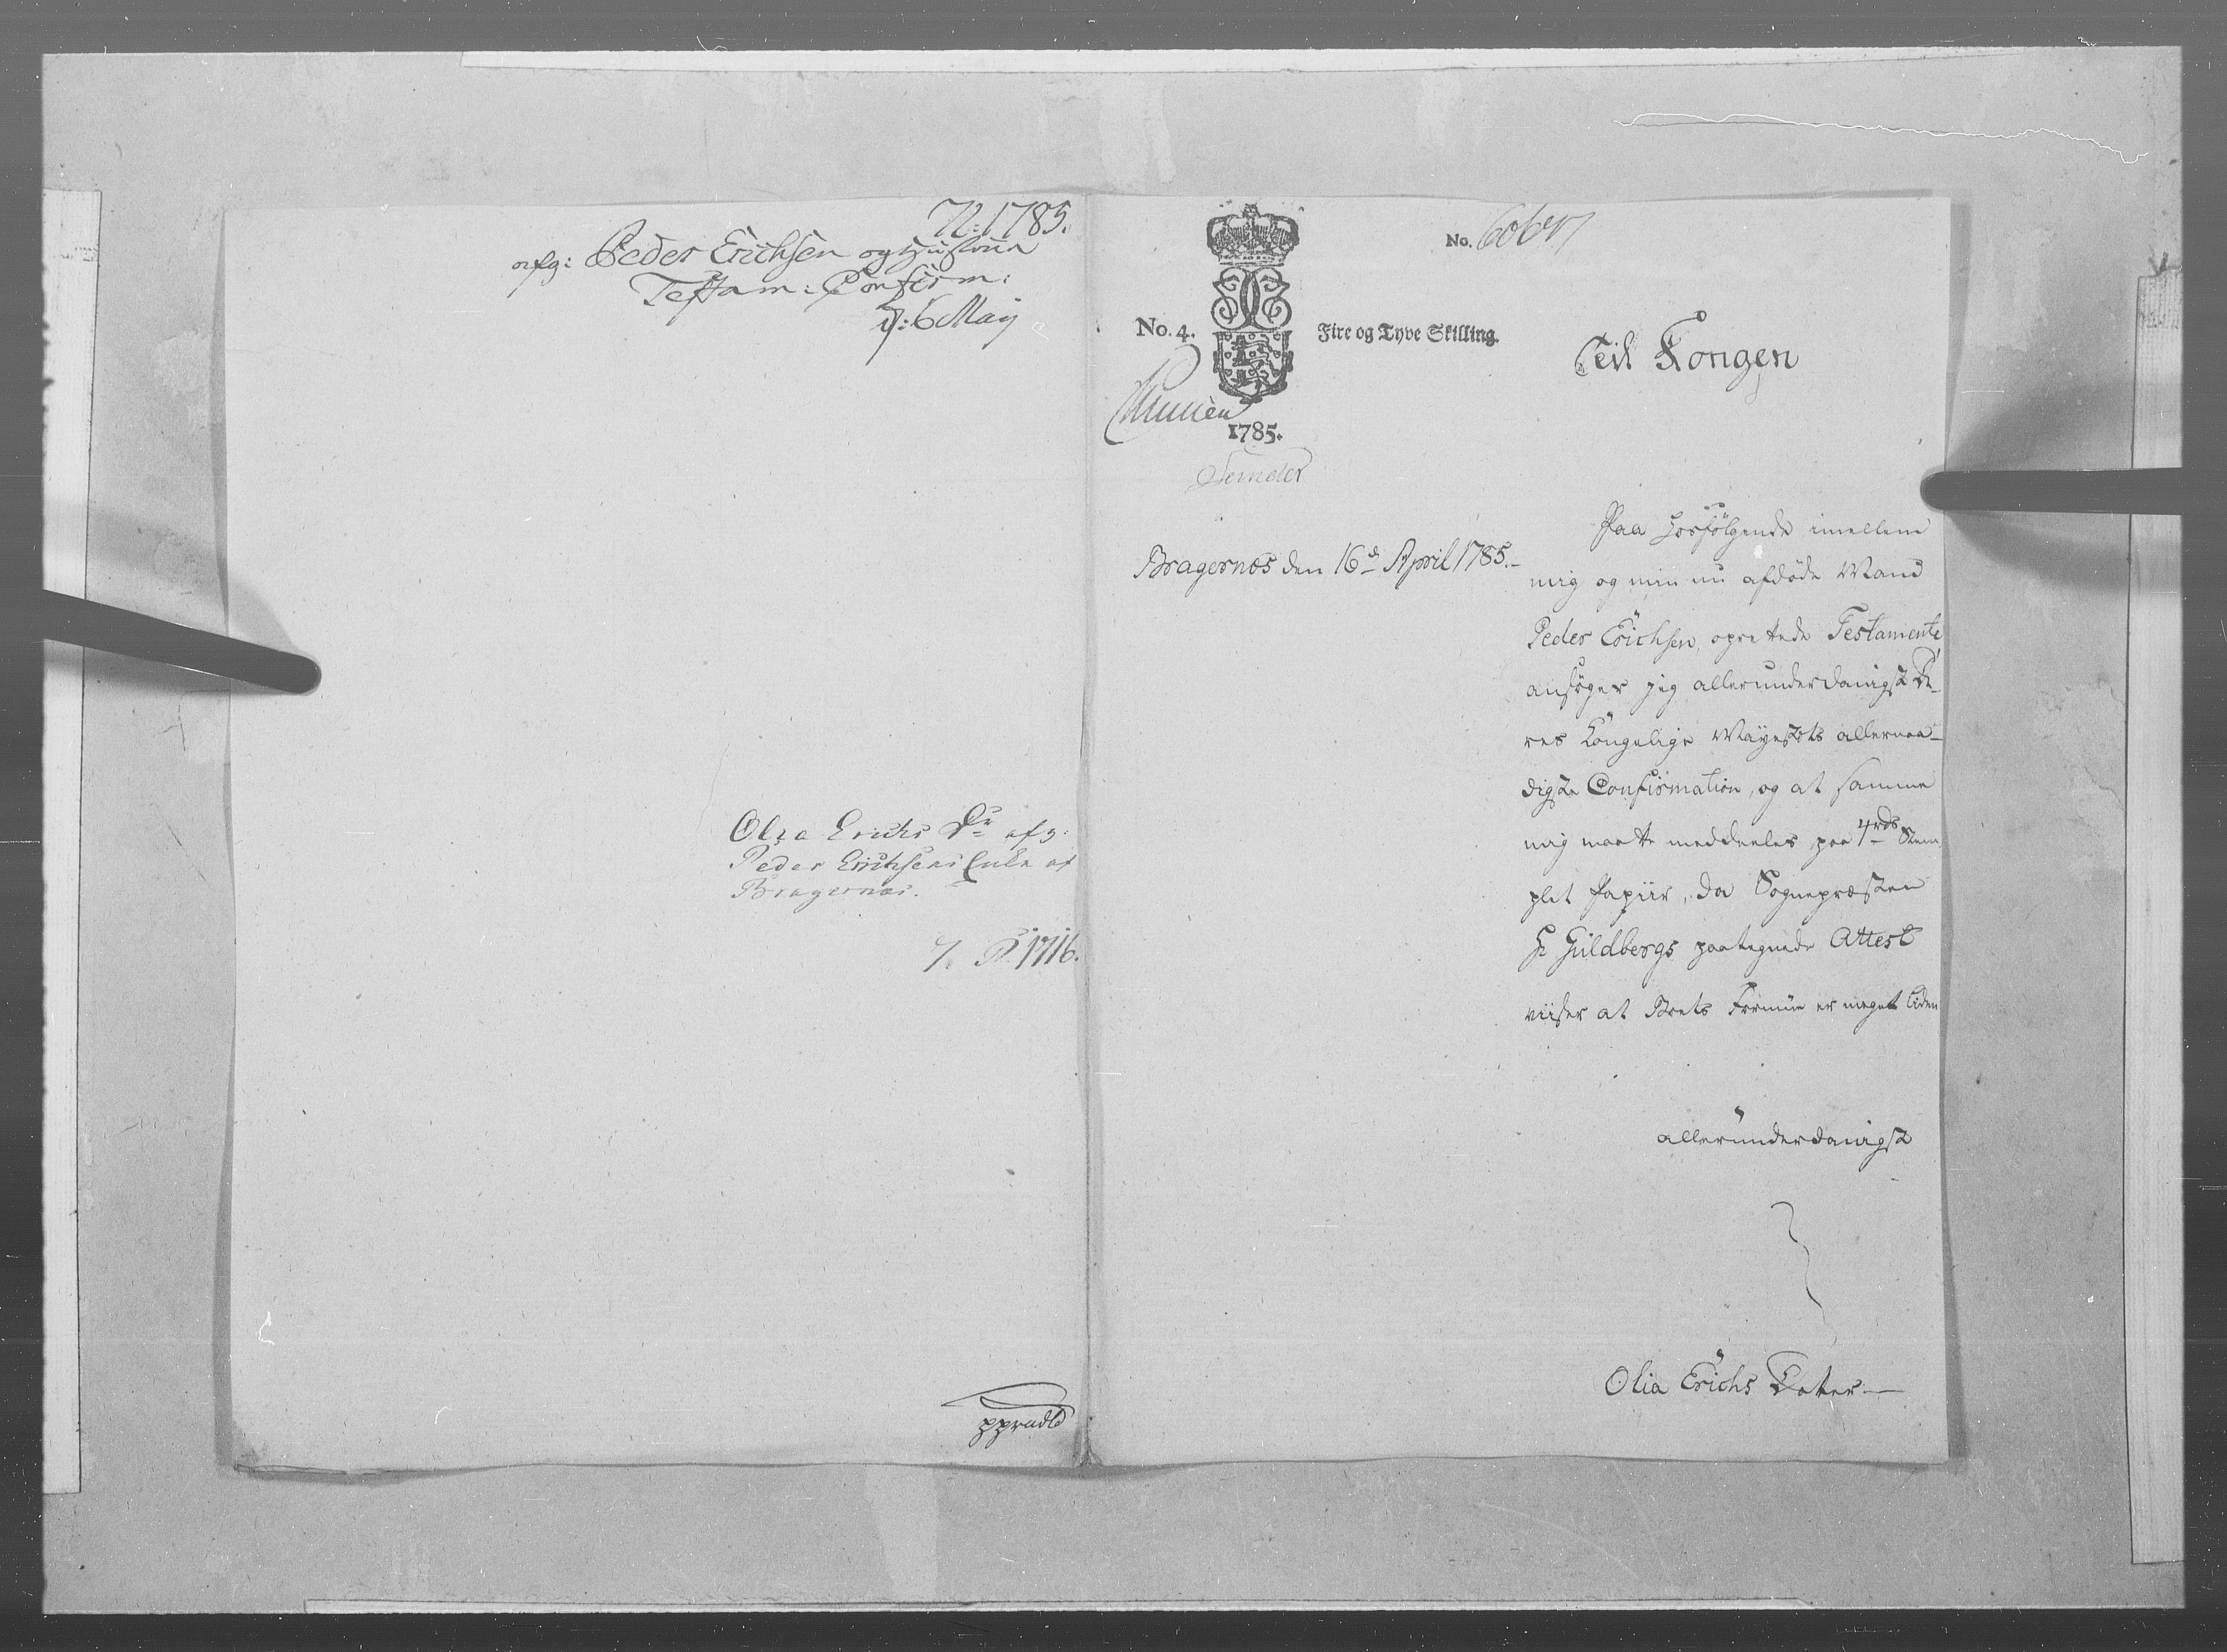 72: 1785.
afg: Peder Erichsen og Hustrue
Testam: Confirm:
d: 6 Maij
Olia Erichs Dr afg:
Peder Erichsens Enke af
Bragernæs.
1716.
No.
No. 4.
Fire og Tyve Skilling.
1785.
Til Kongen
Bragernæs den 16d April 1785.
Paa hosfølgende imellem
mig og min nu afdøde Mand
Peder Erichsen, oprettede Testamente
ansøger jeg allerunderdanigst De-
res Kongelige Mayestets allernaa-
digste Confirmation, og at samme
mig maatte meddeeles paa 4 rds Stem-
plet Papiir, da Sognepræsten
Hr Guldbergs paategnede Attest
viiser at Boets Formue er meget liden
allerunderdanigst
Olia Erichs Datter